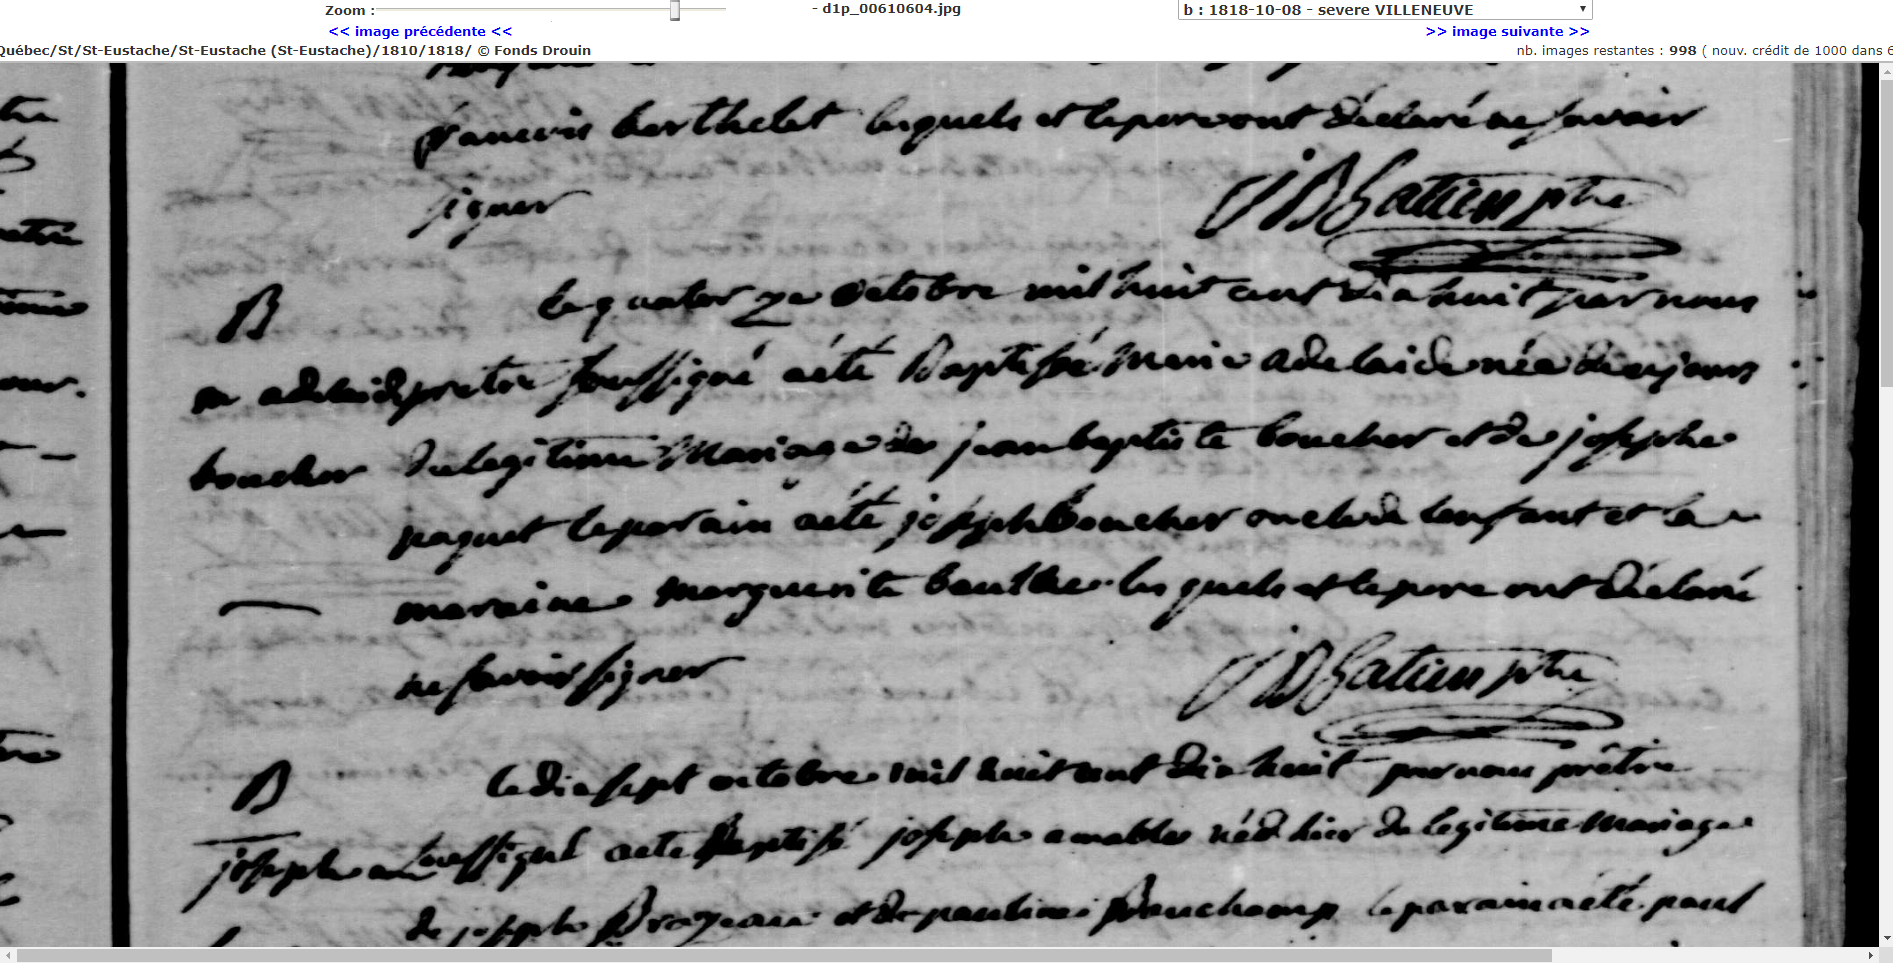 Zoom :
- d1p_00610604.jpg
b : 1818-10-08 - severe VILLENEUVE
<< image précédente <<
>> image suivante >>
Québec/St/St-Eustache/St-Eustache (St-Eustache)/1810/1818/ © Fonds Drouin
nb. images restantes : 998 ( nouv. crédit de 1000 dans 6
francois berthelet lesquels et le pere ont déclaré ne savoir
signer
JB Gatien ptre
B
le quatorze octobre mil huit cent dix huit par nous
m adelaide
pretre soussigné a été Baptisé Marie adelaide née
boucher
du legitime Mariage de jean baptiste boucher et de josephe
paquet le parain a été joseph Boucher oncle de lenfant et la
maraine marguerite lesquels et le pere ont déclaré
ne savoir signer
JB Gatien ptre
B
le dix sept octobre mil huit cent dix huit par nous prêtre
joseph
soussigné a été Baptisé joseph amable né d hier du legitime Mariage
de joseph Brazeau et de Beauchamp le parain a été paul